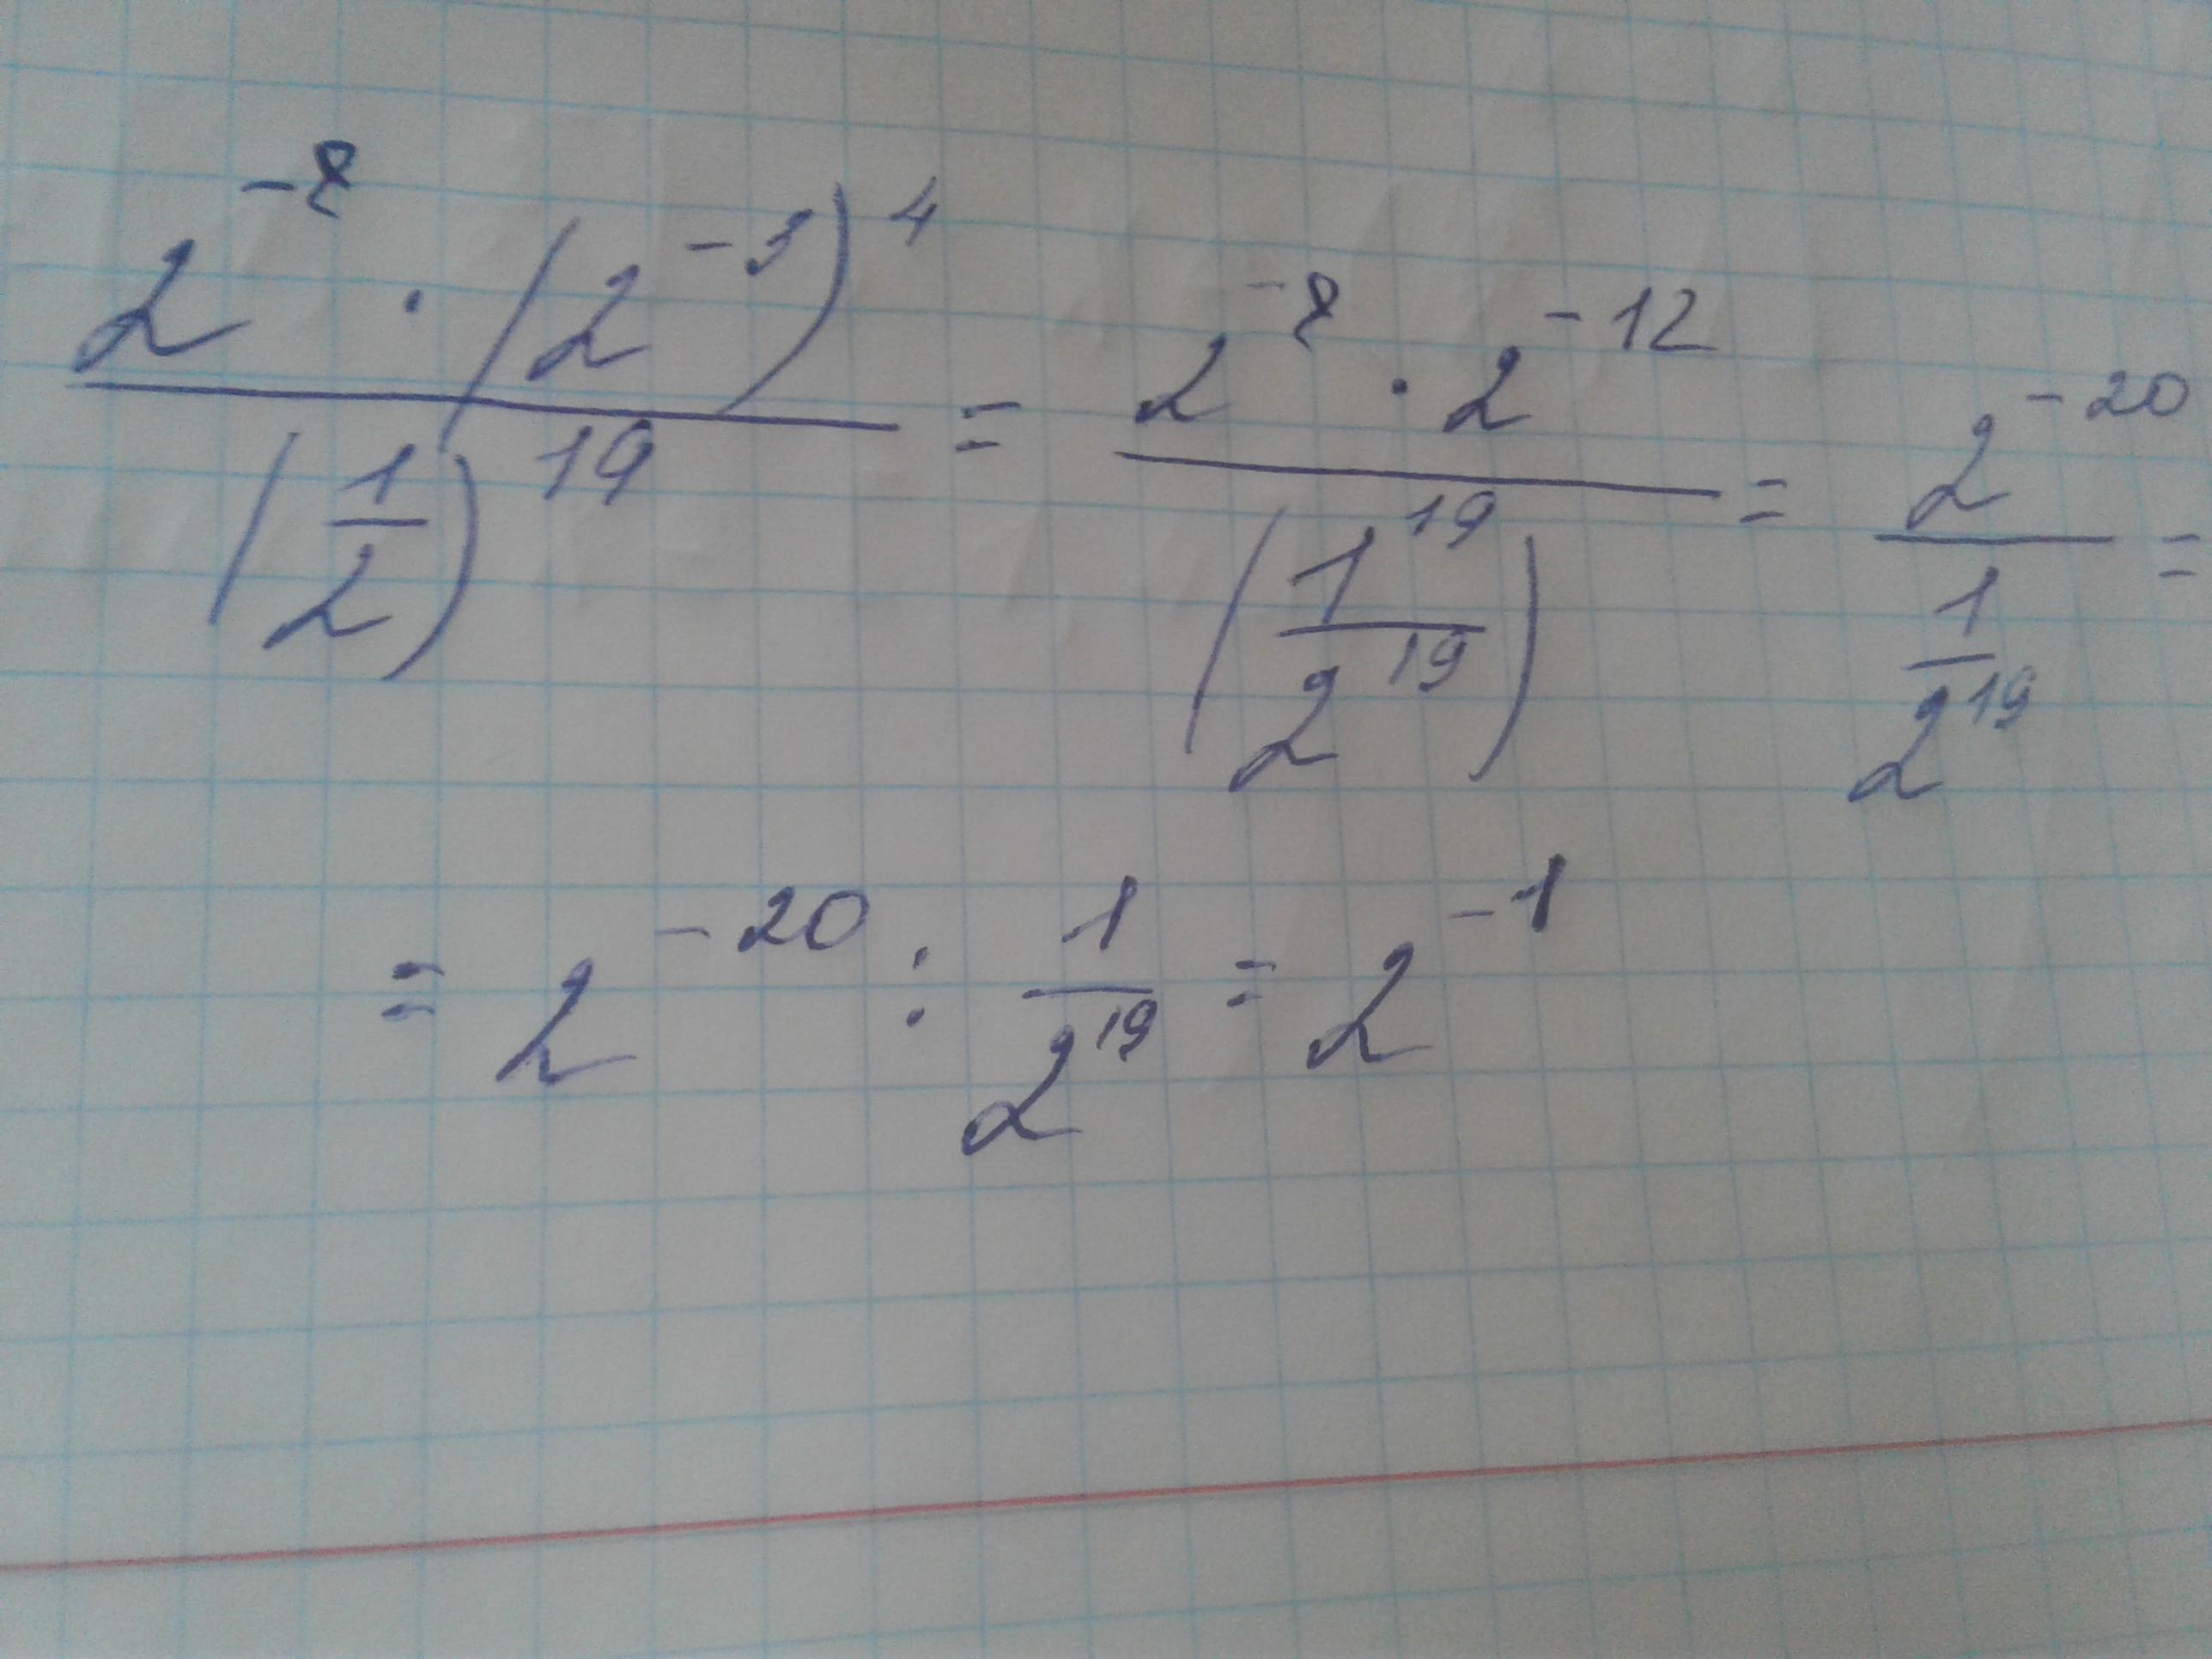 2^{-8} · (2^{-3})^4 / (1/2)^{19} = 2^{-8} · 2^{-12} / (1^{19}/2^{19}) = 2^{-20} / (1/2^{19}) =
= 2^{-20} : 1/2^{19} = 2^{-1}